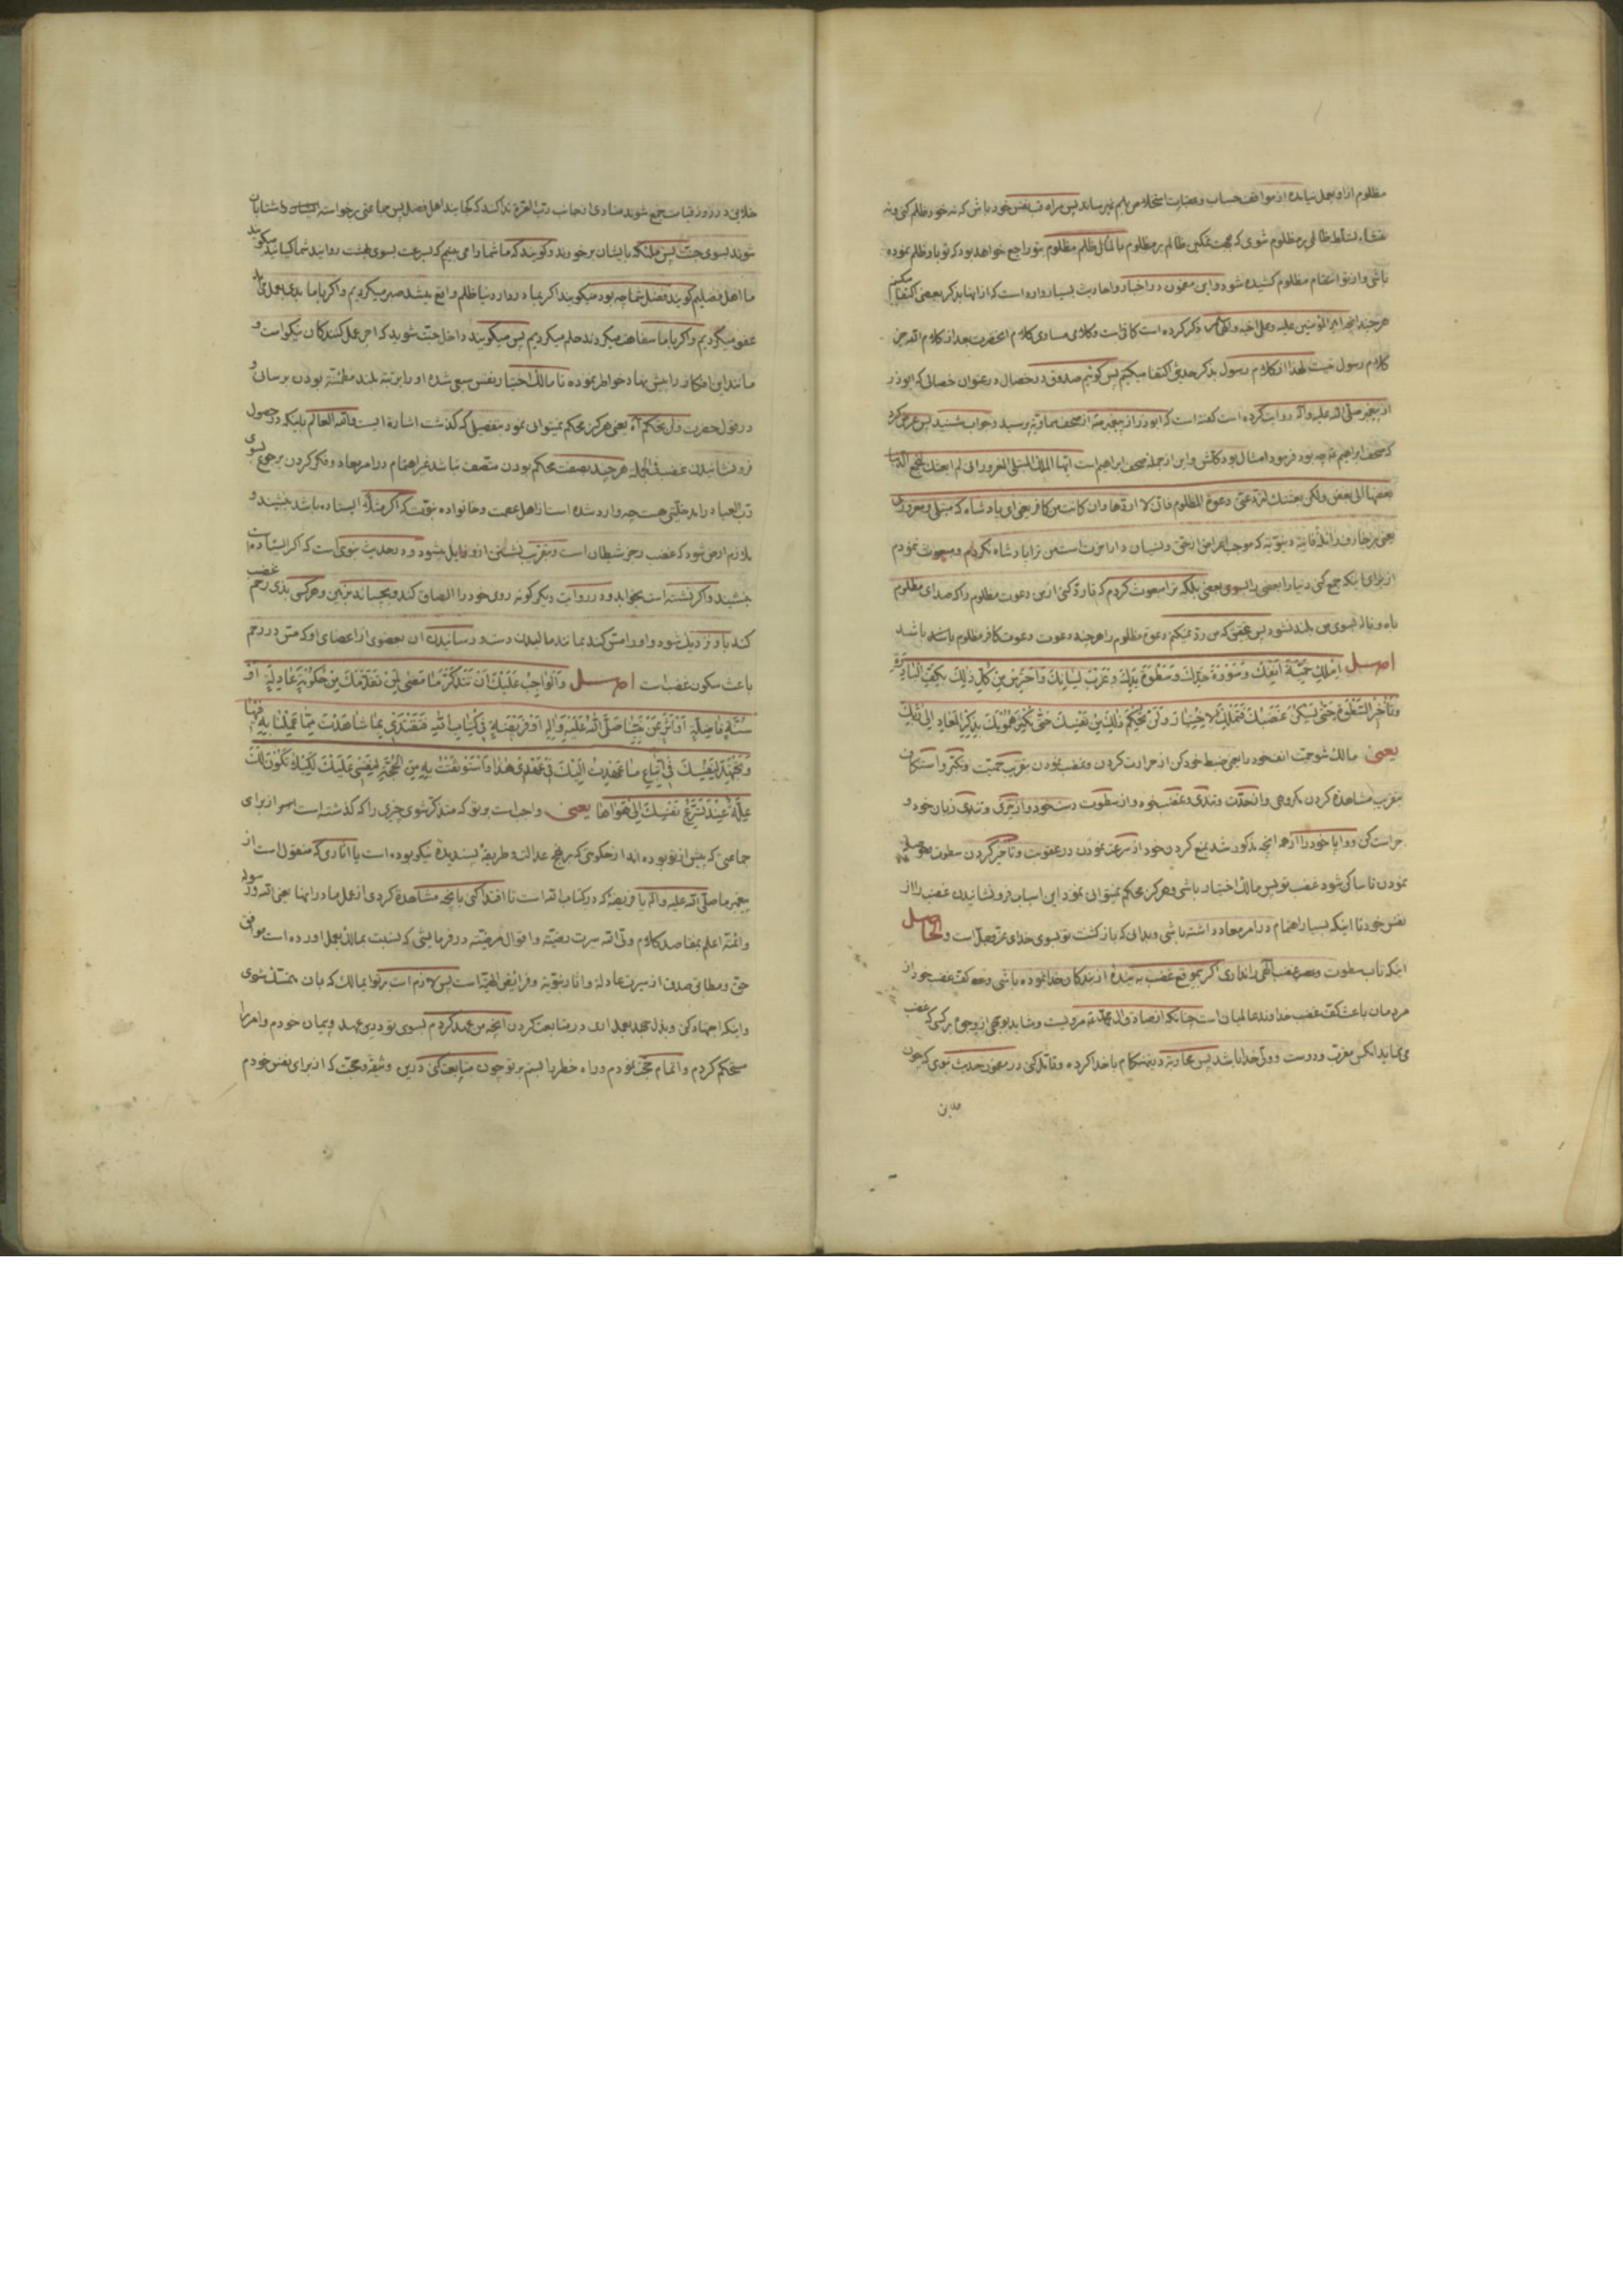 مظلوم از او بعمل نیامده از مواقف حساب و عقبات استخلاص بهم نمیرساند پس مراقب نفس خود باش که نه خود ظلم کنی و نه
منشاء تسلط ظالمی بر مظلوم شوی که بجهت تمکین ظالم بر مظلوم بالمآل ظلم مظلوم بتو راجع خواهد بود که تو باو ظلم نموده
باشی و از تو انتقام مظلوم کشیده شود و این مضمون در اخبار و احادیث بسیار وارد است که از آنها بذکر بعضی اکتفا میکنیم
هر چند آنچه امیر المؤمنین علیه و علی اخیه ذکر کرده است کافی است و کلامی مساوی کلام آنحضرت بعد از کلام الله جز
کلام رسول نیست لهذا از کلام رسول بذکر حدیثی اکتفا میکنیم پس گوئیم صدوق در خصال در عنوان خصالی که ابوذر
از پیغمبر صلی الله علیه و آله روایت کرده است گفته است که ابوذر از پیغمبر از صحف سماویه پرسید و جواب شنید پس عرض کرد
که صحف ابراهیم چه بود فرمود امثال بود کلش و این از جمله صحف ابراهیم است ایها الملک المبتلی المغرور انی لم ابعثک لتجمع الدنیا
بعضها الی بعض ولکن بعثتک لترد عنی دعوة المظلوم فانی لا اردها وان کانت من کافر یعنی ای پادشاه که مبتلی و مغروری
از برای اینکه جمع کنی دنیا را بعضی را بسوی بعضی بلکه ترا مبعوث کردم که تا رد کنی از من دعوت مظلوم را که صدای مظلوم
بآه و ناله بسوی من بلند نشود پس بتحقیق که من رد نمیکنم دعوة مظلوم را هر چند دعوت دعوت کافر مظلوم باشد
اصل املک حمیة انفک و سورة حدک و سطوة یدک و غرب لسانک واحترس من کل ذلک بکف البادرة
وتأخیر السطوة حتی یسکن غضبک فتملک الاختیار ولن تحکم ذلک من نفسک حتی تکثر همومک بذکر المعاد الی ربک
یعنی مالک شو حمیت انف خود را یعنی ضبط خود کن از حرارت کردن و غضب نمودن بتقریب حمیت و تکبر و استنکاف
بتقریب مشاهده کردن مکروهی و از حدت و تندی و غضب خود و از سطوت دست خود و از تیزی و تندی زبان خود و
حراست کن و وا پا خود را از همه آنچه مذکور شد بمنع کردن خود از سرعت نمودن در عقوبت و تاخیر کردن سطوت
نمودن تا ساکن شود غضب تو پس مالک اختیار باشی و هرگز محکم نمیتوانی نمود این اسباب فرونشانیدن غضب را از
نفس خود تا اینکه بسیار اهتمام در امر معاد داشته باشی و بدانی که بازگشت تو بسوی خدای عز وجل است و الحاصل
اینکه تاب سطوت و غضب الهی را نداری اگر بموقع غضب به بندهٔ از بندگان خدا نموده باشی و کف غضب خود از
مردمان باعث کف غضب خداوند عالمیان است چنانکه از صادق آل محمد مرویست و شاید بوجهی از وجوه بر کسی که غضب
می نماید آنکس مقرب و دوست و ولی خدا باشد پس محاربه در هنگام با خدا کرده و قاتل کنی در مضمون حدیث نبوی که چون
خلایق در روز قیامت جمع شوند منادی از جانب رب العزة ندا کند که کجایند اهل فضل پس جماعتی برخواسته شتابان
شوند بسوی جنت پس ملئکه بایشان برخورند و گویند که ما شما را می بینیم که بسرعت بسوی بهشت روانید شما کیانید میگویند
ما اهل فضلیم گویند فضل شما چه بود میگویند اگر بما در دار دنیا ظلم واقع میشد صبر میکردیم و اگر با ما بدی بعمل می آمد
عفو میکردیم و اگر با ما سفاهت میکردند حلم میکردیم پس میگویند داخل جنت شوید که اجر عمل کنندگان نیکو است و
مانند این افکار را پیش نهاد خواطر نموده تا مالک اختیار نفس سبعی شده او را بمرتبه بلند مطمئنه بودن برسان و
در قول حضرت ولن تحکم اه یعنی هرگز محکم نمیتوانی نمود بتفصیل که گذشت اشارة ایست والله العالم باینکه در حصول
فرونشانیدن غضب فی الجمله هر چند بصفت محکم بودن متصف نباشد غیر اهتمام در امر معاد و فکر کردن برجوع بسوی
رب العباد را مدخلیتی هست چه وارد شده است از اهل عصمت و خانواده نبوت که اگر مثلا ایستاده باشد بنشیند و
بلازم ارض شود که غضب رجز شیطان است و بتقریب نشستن از او زایل میشود و در حدیث نبوی است که اگر ایستاده
بنشیند و اگر نشسته است بخوابد و در روایت دیگر گونه روی خود را الصاق کند و بچسباند بزمین و هر کس بذی رحم غضب
کند باو نزدیک شود و او را مس کند بمانند مالیدن دست و رسانیدن آن بعضوی از اعضای او که مس در رحم
باعث سکون غضب است اصل والواجب علیک ان تتذکر ما مضی لمن تقدمک من حکومة عادلة او
سنة فاضلة او اثر عن نبینا صلی الله علیه وآله او فریضة فی کتاب الله فتقتدی بما شاهدت مما عملنا به فیها
وتجتهد لنفسک فی اتباع ما عهدت الیک فی عهدی هذا واستوثقت به من الحجة لنفسی علیک لکیلا تکون لک
علة عند تسرع نفسک الی هواها یعنی واجب است بر تو که متذکر شوی چیزی را که گذشته است از برای
جماعتی که پیش از تو بوده اند از حکومتی که بر نهج عدالت و طریقهٔ پسندیدهٔ نیکو بوده است یا آثاری که منقول است از
پیغمبر ما صلی الله علیه و آله یا فریضهٔ که در کتاب الله است تا اقتدا کنی بآنچه مشاهده کردی از عمل ما در آنها یعنی الله و رسوله
وائمته اعلم بمقاصد کلام ولی الله سیرت رضیه و اقوال مرضیه در فرمایشی که نسبت بمالک بعمل آورده است موافق
حق و مطابق صدق از سیرت عادله و آثار نبویه و فرائض الهیه است پس لازم است بر تو ایمالک که بآن متمسک شوی
و اینکه اجتهاد کنی و بذل جهد بعمل آری در متابعت کردن آنچه من عهد کردم بسوی تو درین عهد و پیمان خودم و امر را
مستحکم کردم و اتمام حجت نمودم و راه خطر را بستم بر تو چون متابعت کنی درین وثیقه و حجت که از برای نفس خودم